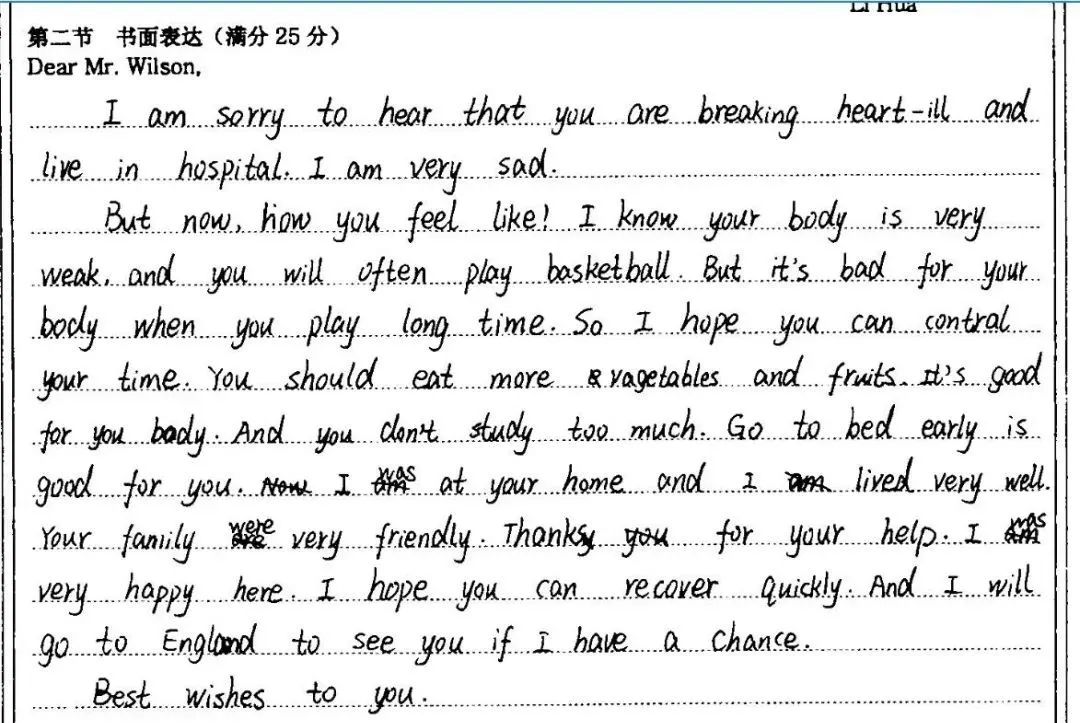 Li Hua
第二节 书面表达（满分 25 分）
Dear Mr. Wilson,
I am sorry to hear that you are breaking heart-ill and
live in hospital. I am very sad.
But now, how you feel like! I know your body is very
weak, and you will often play basketball. But it's bad for your
body when you play long time. So I hope you can contral
your time. You should eat more vagetables and fruits. It's good
for you body. And you don't study too much. Go to bed early is
good for you. I was at your home and I lived very well.
Your family were very friendly. Thanks for your help. I was
very happy here. I hope you can recover quickly. And I will
go to England to see you if I have a chance.
Best wishes to you.